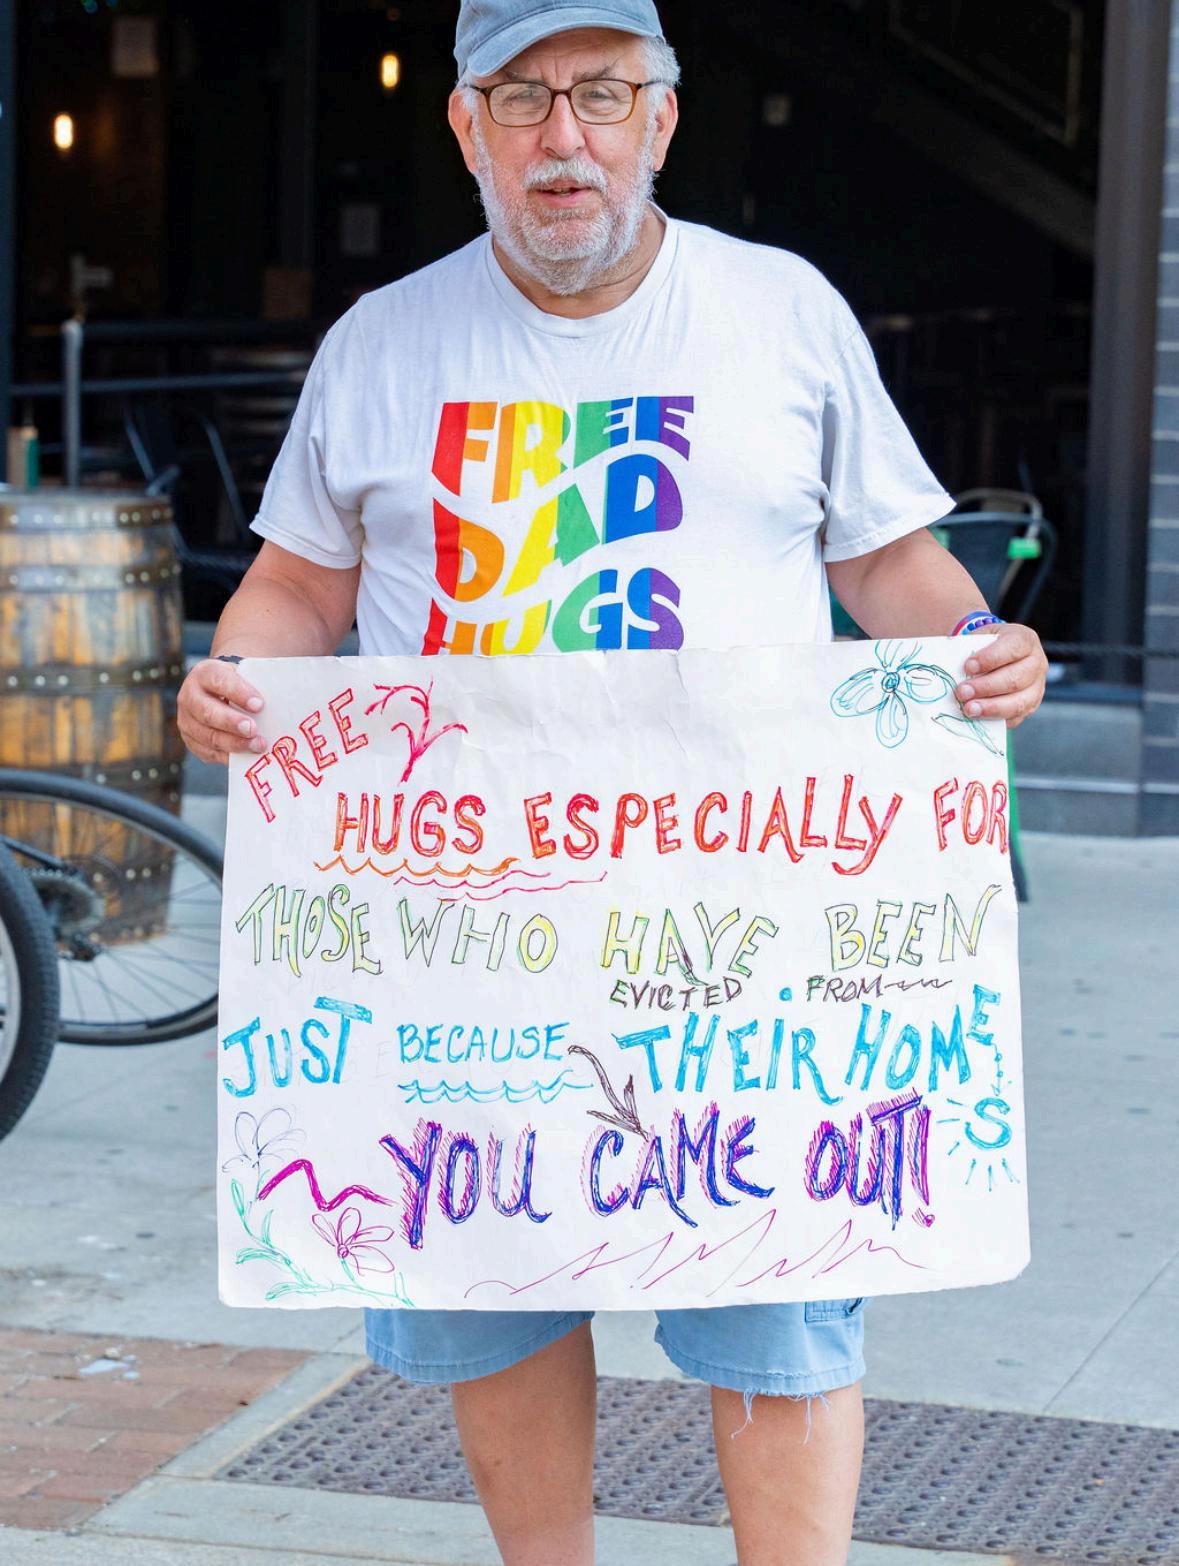 FREE
DAD
HUGS
FREE
HUGS ESPECIALLY FOR
THOSE WHO HAVE BEEN
EVICTED • FROM
JUST BECAUSE THEIR HOME
S
YOU CAME OUT!